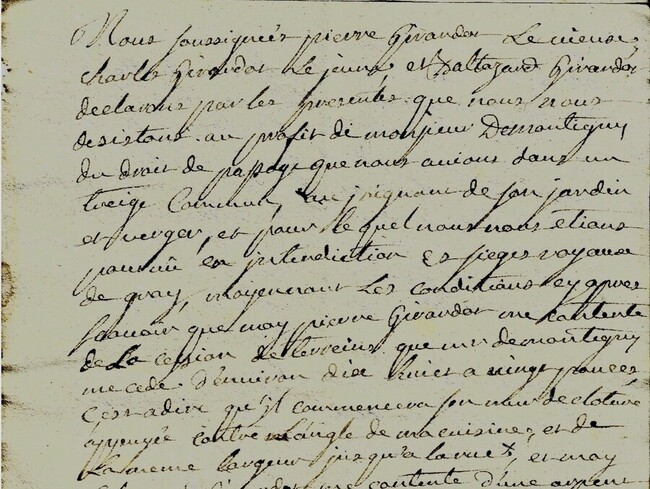 Nous soussignés pierre Girardot Le vieux,
charles Girardot Le jeune et Baltazard Girardot
declarons par les presentes que nous nous
desistons au profit de monsieur Demontigny
du droit de passage que nous avions dans un
treige Commun, joignant de son jardin
et verger, et pour lequel nous nous étions
pourvu en jnterdiction es sieges royaux
de gray, moyennant Les conditions cy apres
scavoir que moy pierre Girardot me contente
de La cession de terreins que mr demontigny
me cede d'environ dix huict a vingt pouces
C'est adire qu'jl commencera son mur de cloture
appuyée contre L'angle de ma cuisine, et de
La meme largeur jusqu'a la rue x, et moy
me contente d'une arpent